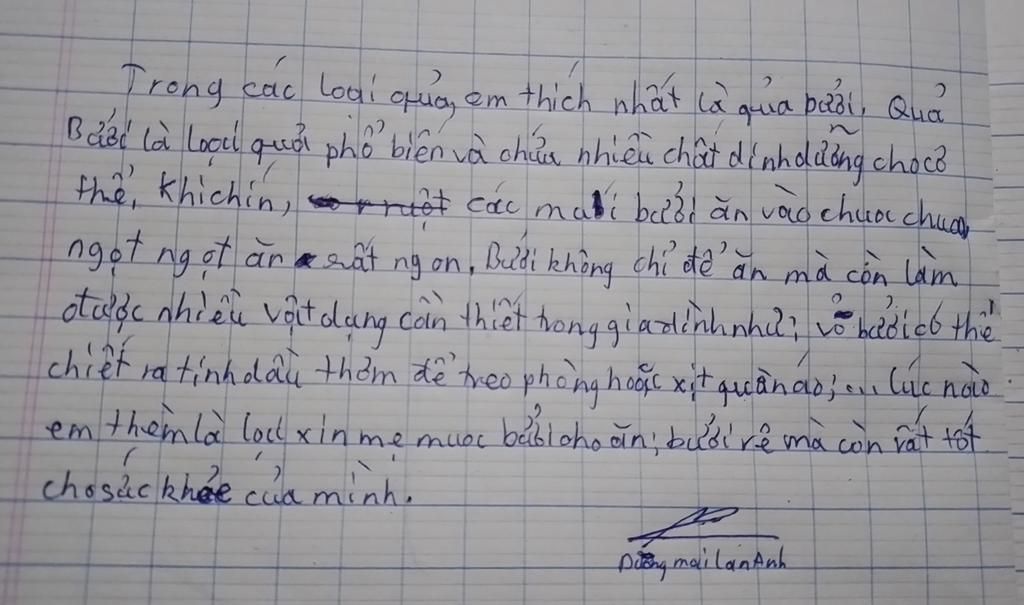 Trong các loại quả, em thích nhất là quả bưởi. Quả
Bưởi là loại quả phổ biến và chứa nhiều chất dinh dưỡng cho cơ
thể, khi chín, các múi bưởi ăn vào chuoc chua
ngọt ngọt ăn rất ngon, Bưởi không chỉ để ăn mà còn làm
được nhiều vật dụng cần thiết trong gia đình như; vỏ bưởi có thể
chiết ra tinh dầu thơm để treo phòng hoặc xịt quần áo;... lúc nào
em thèm là lại xin mẹ muoc bưởi cho ăn; bưởi rẻ mà còn rất tốt
cho sức khỏe của mình.
Dương mai lan Anh